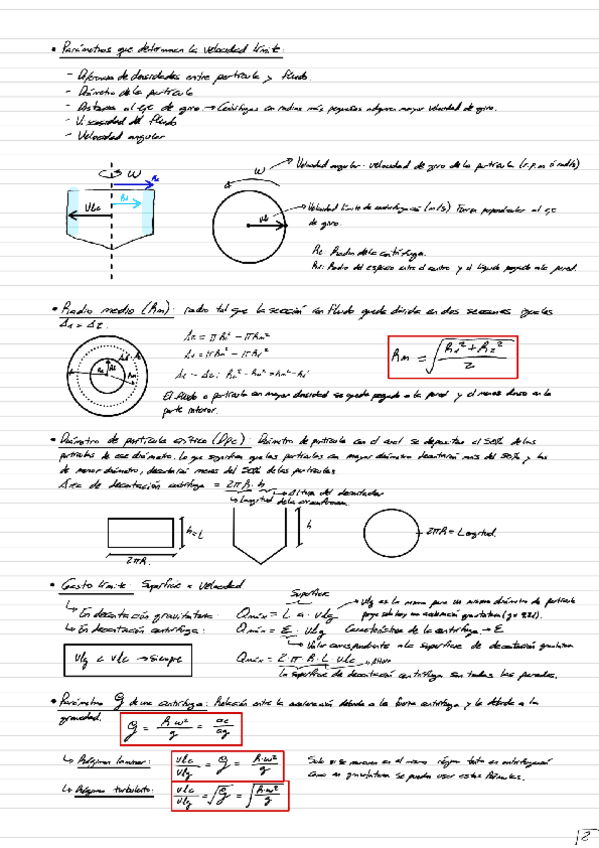 • Parámetros que determinan la velocidad límite:
- Diferencia de densidades entre partícula y fluido.
- Diámetro de la partícula
- Distancia al eje de giro → Centrífugas con radios más pequeños adquieren mayor velocidad de giro.
- Viscosidad del fluido
- Velocidad angular
W
Vlc
W
Velocidad angular: velocidad de giro de la partícula (r.p.m ó rad/s)
Vlc
Velocidad límite de centrifugación (m/s)
perpendicular al eje
de giro.
Rc: Radio de la centrífuga.
Radio del espacio entre el centro y el líquido pegado a la pared.
• Radio medio (Rm): radio tal que la sección con fluido queda dividida en dos secciones iguales
Rm = √(R₁² + R₂² / 2)
El fluido o partícula con mayor densidad se queda pegado a la pared y el menos denso en la
parte interior.
• Diámetro de partícula crítico (Dpc): Diámetro de partícula con el cual se depositan el 50% de las
partículas de ese diámetro. Lo que significa que las partículas con mayor diámetro decantarán más del 50% y las
de menor diámetro, decantarán menos del 50% de las partículas
Área de decantación centrífuga = 2πR·h
Altura del decantador
Longitud de la circunferencia
h=L
2πR.
h
2πR = Longitud.
• Gasto límite: Superficie × Velocidad
Superficie
↳ En decantación gravitatoria: Qmáx = L·a·vlg
Vlg es la misma para un mismo diámetro de partícula
↳ En decantación centrífuga: Qmáx = Σ·vlg Característica de la centrífuga → Σ
Valor correspondiente a la superficie de decantación gravitatoria
vlg < vlc → siempre
Qmáx = 2·π·R·L·vlc
La superficie de decantación centrífuga son todas las paredes.
• Parámetro G de una centrífuga: Relación entre la aceleración debida a la fuerza centrífuga y la debida a la
gravedad.
G = R·w²/g = ac/ag
↳ Régimen laminar: vlc/vlg = G = R·w²/g
Solo si se mueven en el mismo régimen tanto en centrifugación
como en gravitatoria se pueden usar estas fórmulas.
↳ Régimen turbulento: vlc/vlg = √G = √(R·w²/g)
2